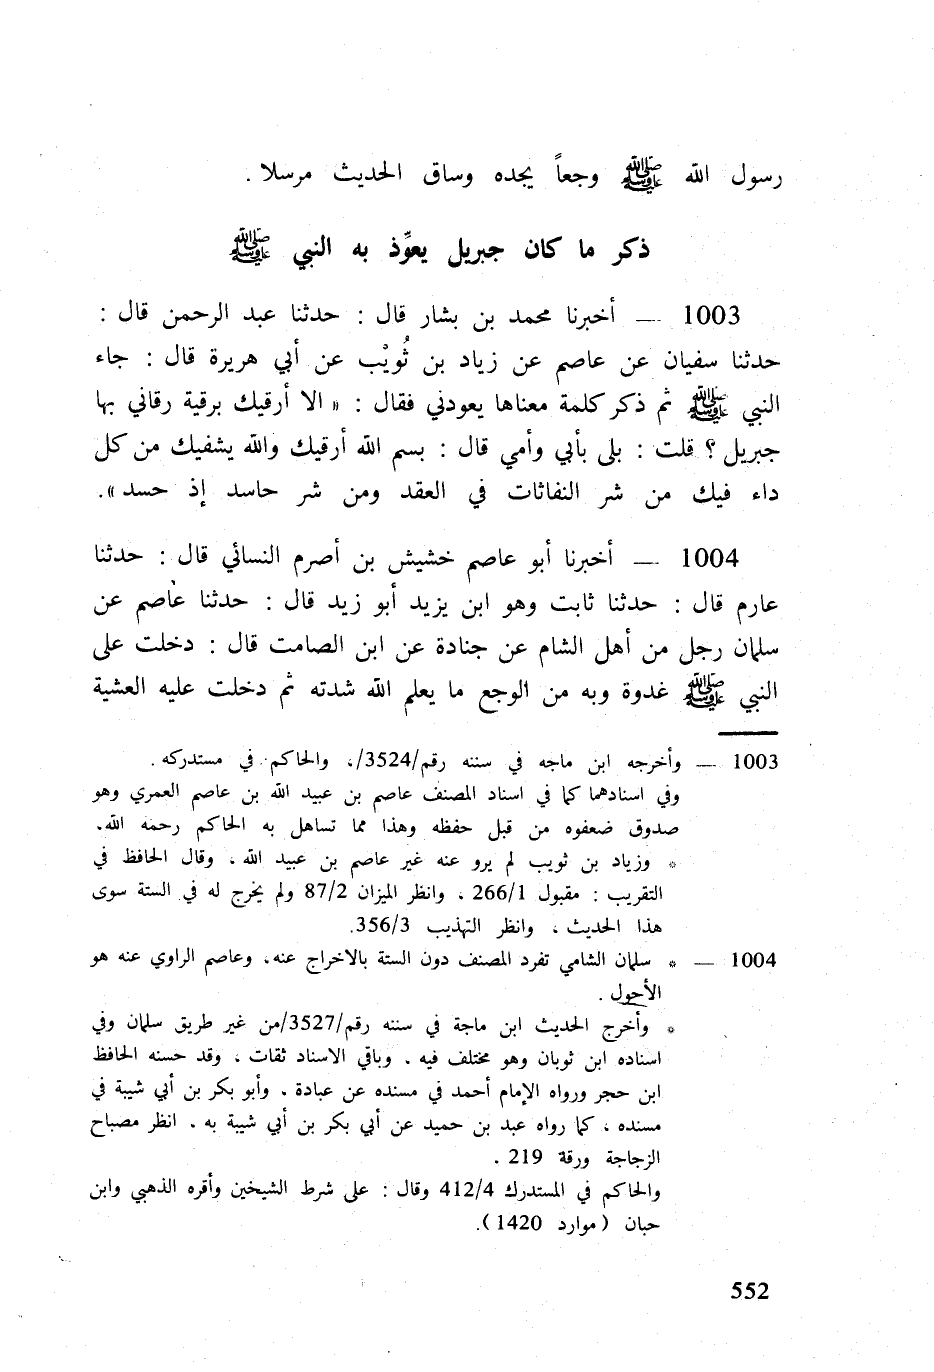 رسول الله ﷺ وجعاً يجده وساق الحديث مرسلا .
ذكر ما كان جبريل يعوِّذ به النبي ﷺ
1003 — أخبرنا محمد بن بشار قال : حدثنا عبد الرحمن قال :
حدثنا سفيان عن عاصم عن زياد بن ثُويْب عن أبي هريرة قال : جاء
النبي ﷺ ثم ذكر كلمة معناها يعودني فقال : « الا أرقيك برقية رقاني بها
جبريل ؟ قلت : بلى بأبي وأمي قال : بسم الله أرقيك والله يشفيك من كل
داء فيك من شر النفاثات في العقد ومن شر حاسد إذ حسد ».
1004 — أخبرنا أبو عاصم خشيش بن أصرم النسائي قال : حدثنا
عارم قال : حدثنا ثابت وهو ابن يزيد أبو زيد قال : حدثنا عاصم عن
سلمان رجل من أهل الشام عن جنادة عن ابن الصامت قال : دخلت على
النبي ﷺ غدوة وبه من الوجع ما يعلم الله شدته ثم دخلت عليه العشية
1003 — وأخرجه ابن ماجه في سننه رقم/3524/، والحاكم في مستدركه .
وفي اسنادهما كما في اسناد المصنف عاصم بن عبيد الله بن عاصم العمري وهو
صدوق ضعفوه من قبل حفظه وهذا مما تساهل به الحاكم رحمه الله.
* وزياد بن ثويب لم يرو عنه غير عاصم بن عبيد الله ، وقال الحافظ في
التقريب : مقبول 266/1 ، وانظر الميزان 87/2 ولم يخرج له في الستة سوى
هذا الحديث ، وانظر التهذيب 356/3.
1004 — * سلمان الشامي تفرد المصنف دون الستة بالاخراج عنه، وعاصم الراوي عنه هو
الأحول .
* وأخرج الحديث ابن ماجة في سننه رقم/3527/من غير طريق سلمان وفي
اسناده ابن ثوبان وهو مختلف فيه . وباقي الاسناد ثقات ، وقد حسنه الحافظ
ابن حجر ورواه الإمام أحمد في مسنده عن عبادة . وأبو بكر بن أبي شيبة في
مسنده ، كما رواه عبد بن حميد عن أبي بكر بن أبي شيبة به . انظر مصباح
الزجاجة ورقة 219 .
والحاكم في المستدرك 412/4 وقال : على شرط الشيخين وأقره الذهبي وابن
حبان ( موارد 1420).
552